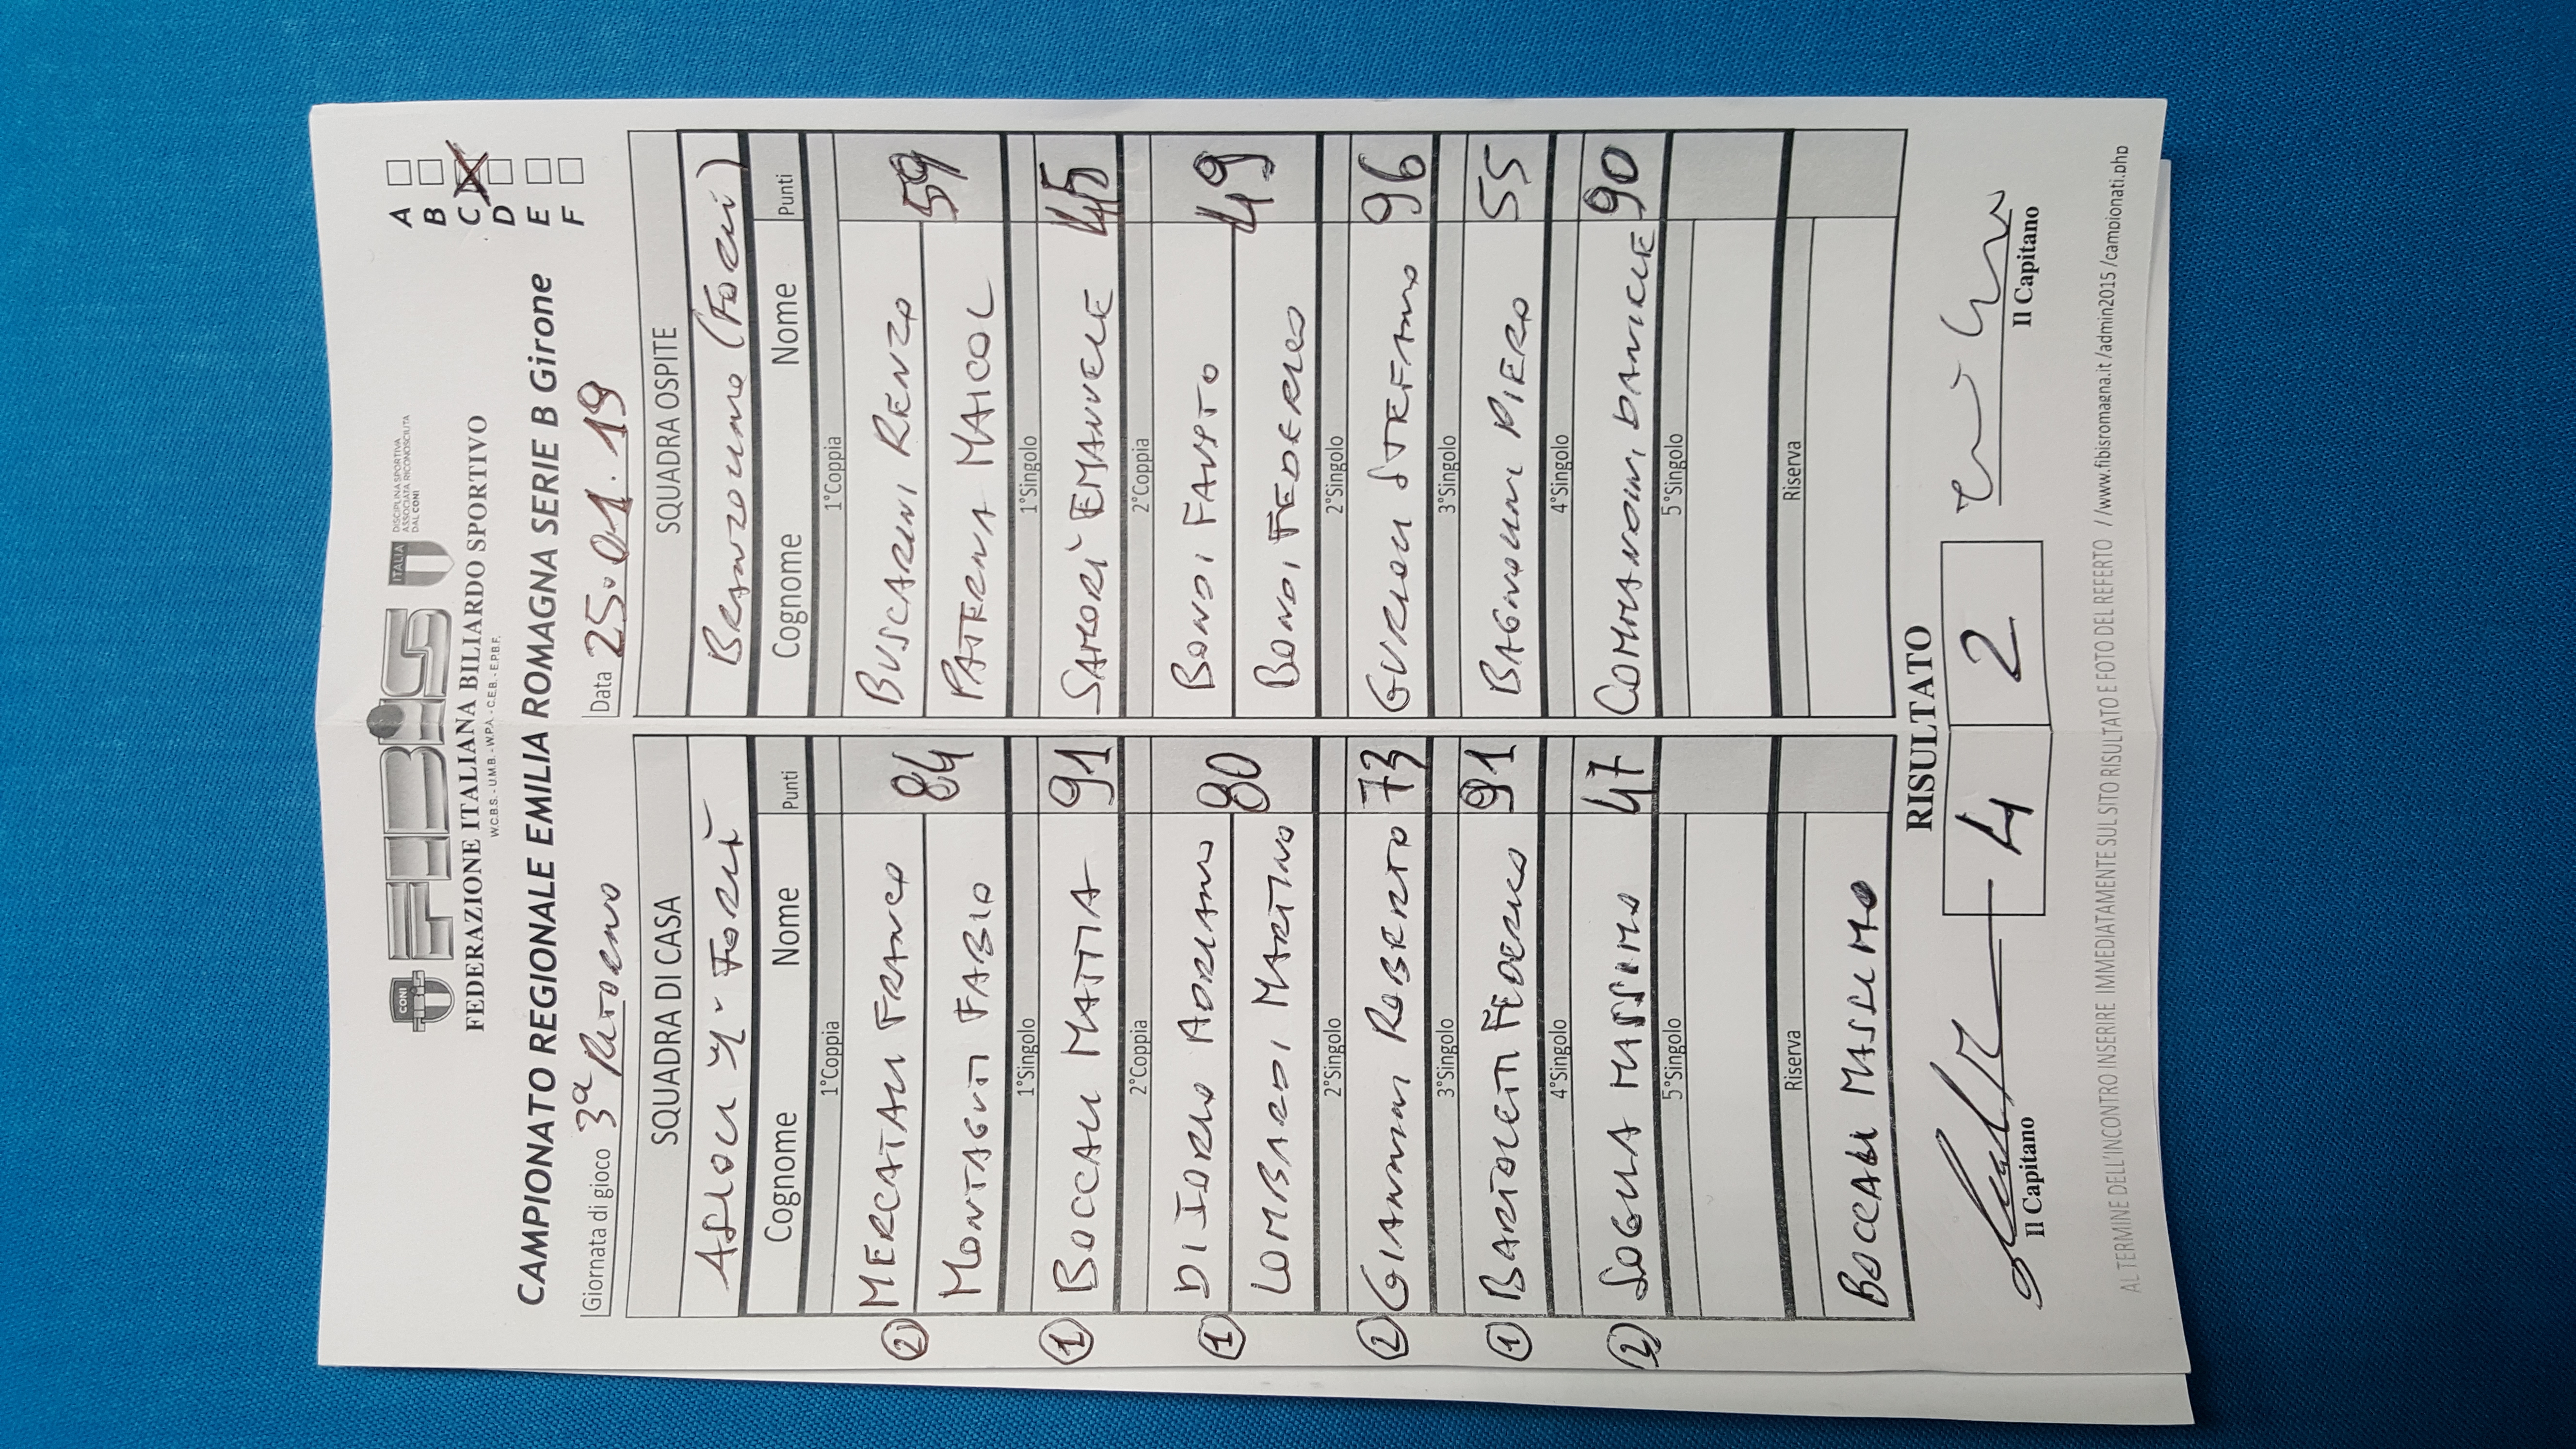 CONI
FIBiS
ITALIA
DISCIPLINA SPORTIVA
ASSOCIATA RICONOSCIUTA
DAL CONI
FEDERAZIONE ITALIANA BILIARDO SPORTIVO
W.C.B.S. - U.M.B. - W.P.A. - C.E.B. - E.P.B.F.
A
B
C
D
E
F
CAMPIONATO REGIONALE EMILIA ROMAGNA SERIE B Girone
Giornata di gioco 3ª Ritorno Data 25.01.19
SQUADRA DI CASA SQUADRA OSPITE
Forlì Branzolino (Forlì)
Cognome Nome Punti Cognome Nome Punti
1°Coppia 1°Coppia
② MERCATALI FRANCO BUSCARINI RENZO
84 59
MONTAGUTI FABIO PATTERNA MAICOL
1°Singolo 1°Singolo
① BOCCALI MATTIA 91 SAMORÌ EMANUELE 45
2°Coppia 2°Coppia
① DI IORIO ADRIANO BONDI FAUSTO
80 49
LOMBARDI MARTINO BONDI FEDERICO
2°Singolo 2°Singolo
② GIANNINI ROBERTO 73 GURIOLI STEFANO 96
3°Singolo 3°Singolo
① BARTOLETTI FEDERICO 91 BAGNOLINI PIERO 55
4°Singolo 4°Singolo
② SOGLIA MASSIMO 47 COMMANDINI DANIELE 90
5°Singolo 5°Singolo
Riserva Riserva
BOCCALI MASSIMO
RISULTATO
4 2
Il Capitano Il Capitano
AL TERMINE DELL'INCONTRO INSERIRE IMMEDIATAMENTE SUL SITO RISULTATO E FOTO DEL REFERTO //www.fibisromagna.it/admin2015/campionati.php